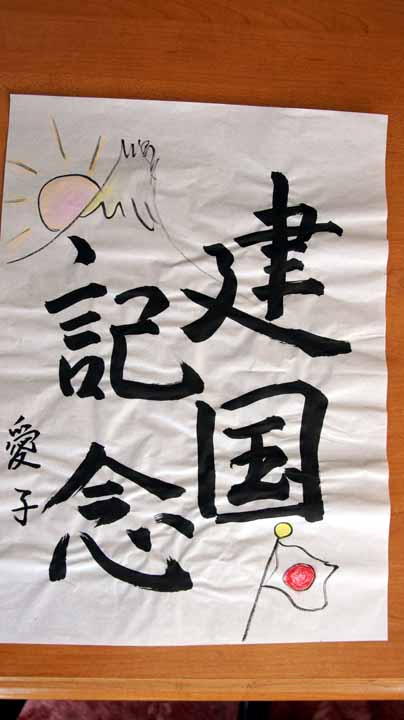 建国
記念
愛子